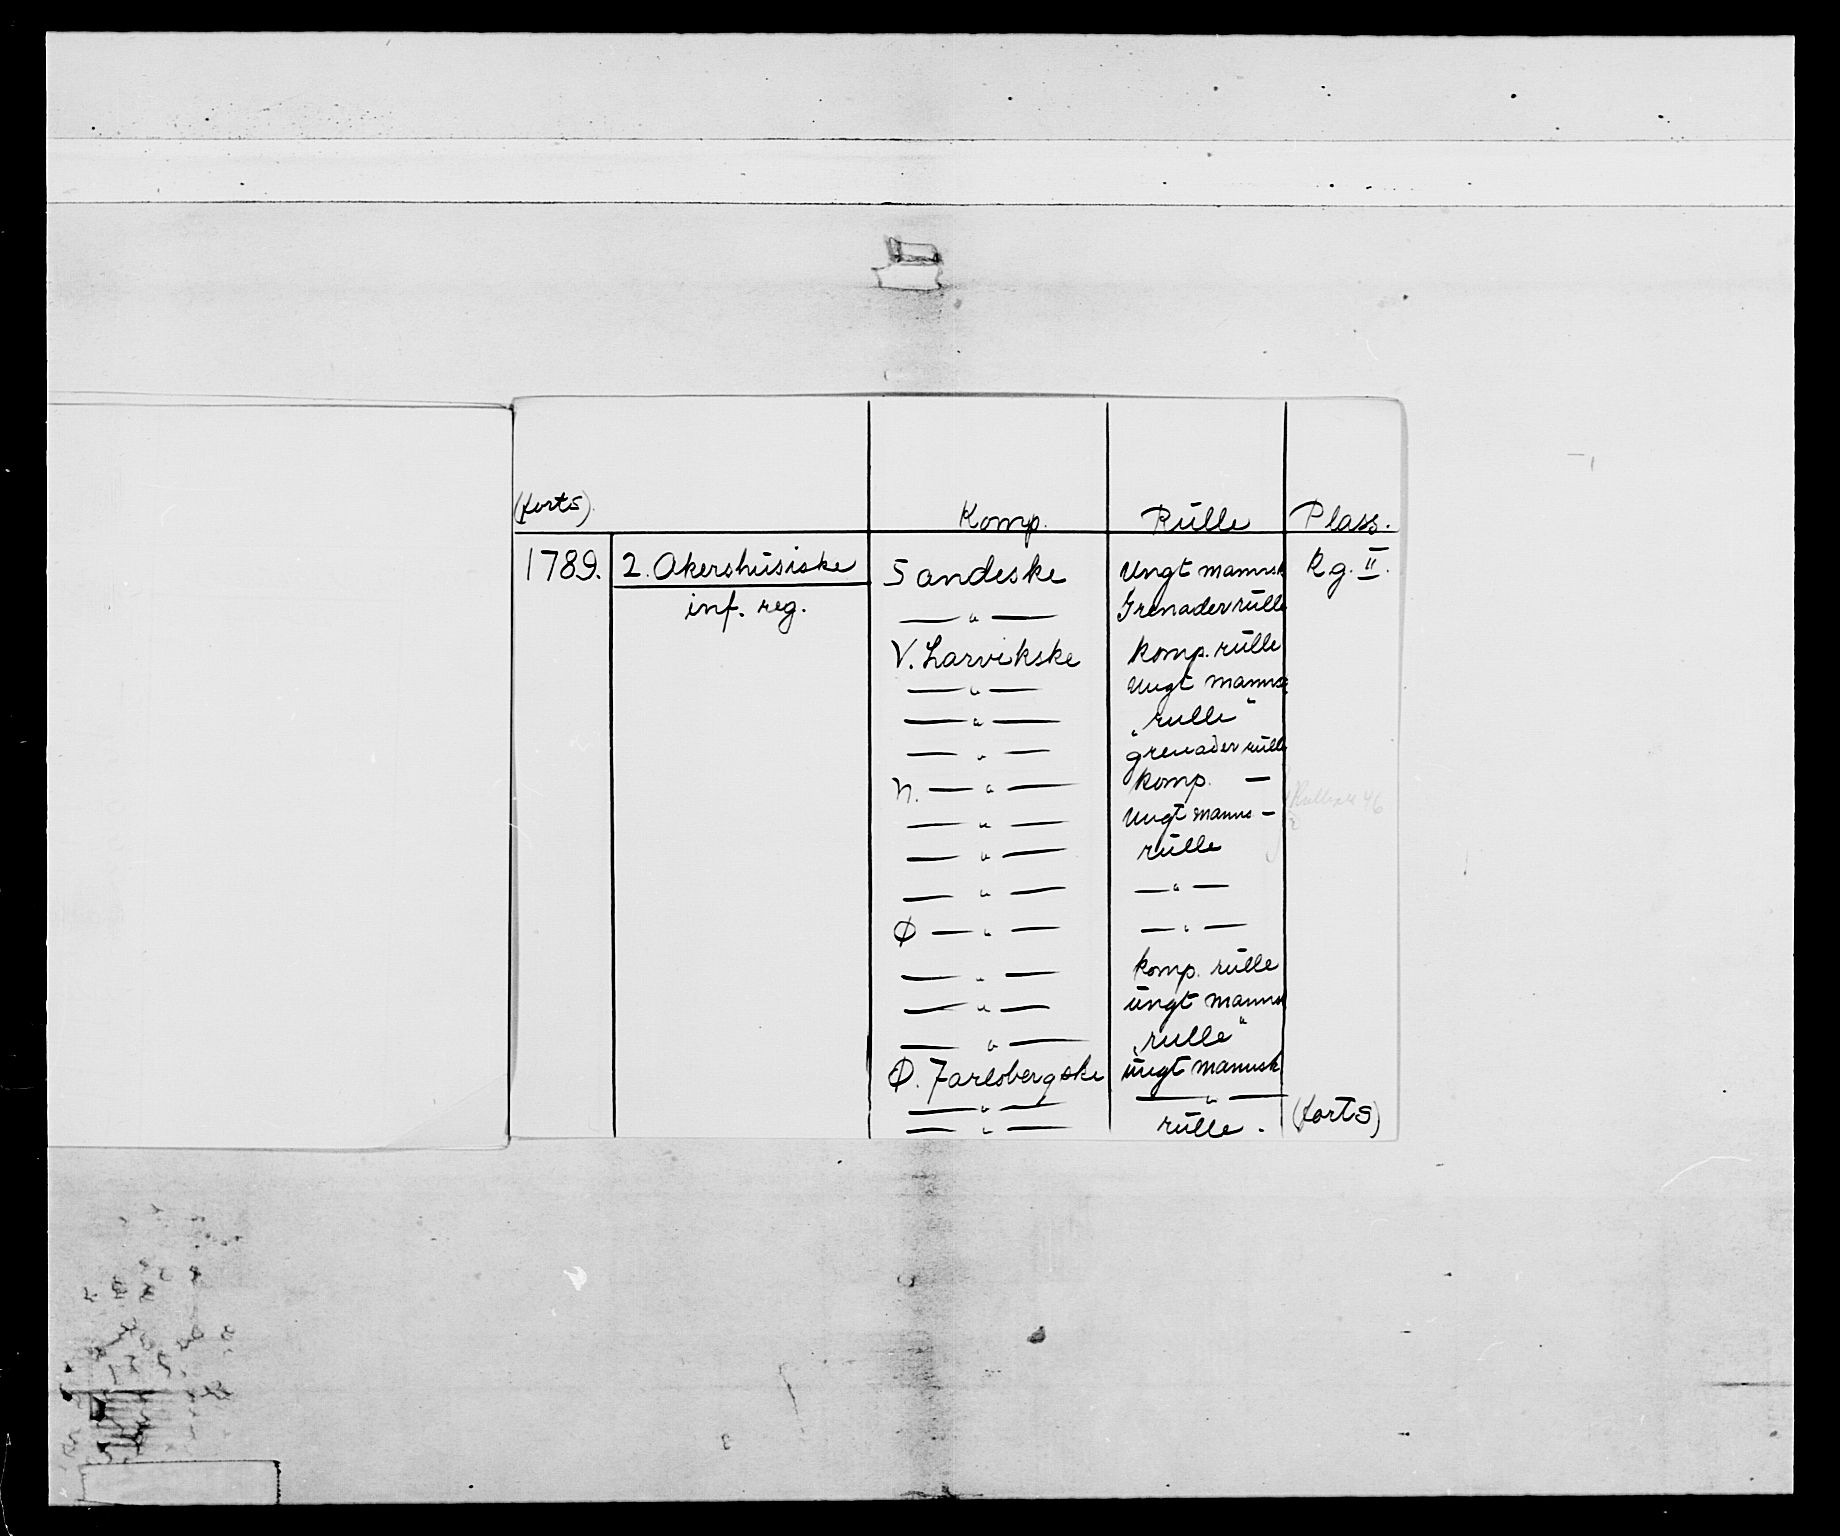 (forts).
Komp. Rulle Plass.
1789. 2. Akershusiske Sandeske Ungt mannsk Rg. II.
inf. reg. — " — Grenader rulle
V. Larvikske Komp. rulle
— " — Ungt manns
— " — „rulle"
— " — grenader rulle
N. — " — Komp. —
— " — Ungt manns —
— " — rulle
— " — — " —
Ø — " — — " —
— " — komp. rulle
— " — ungt manns
— " — „rulle"
Ø. Jarlsbergske ungt mannsk.
— " — — " —
— " — rulle. (forts)